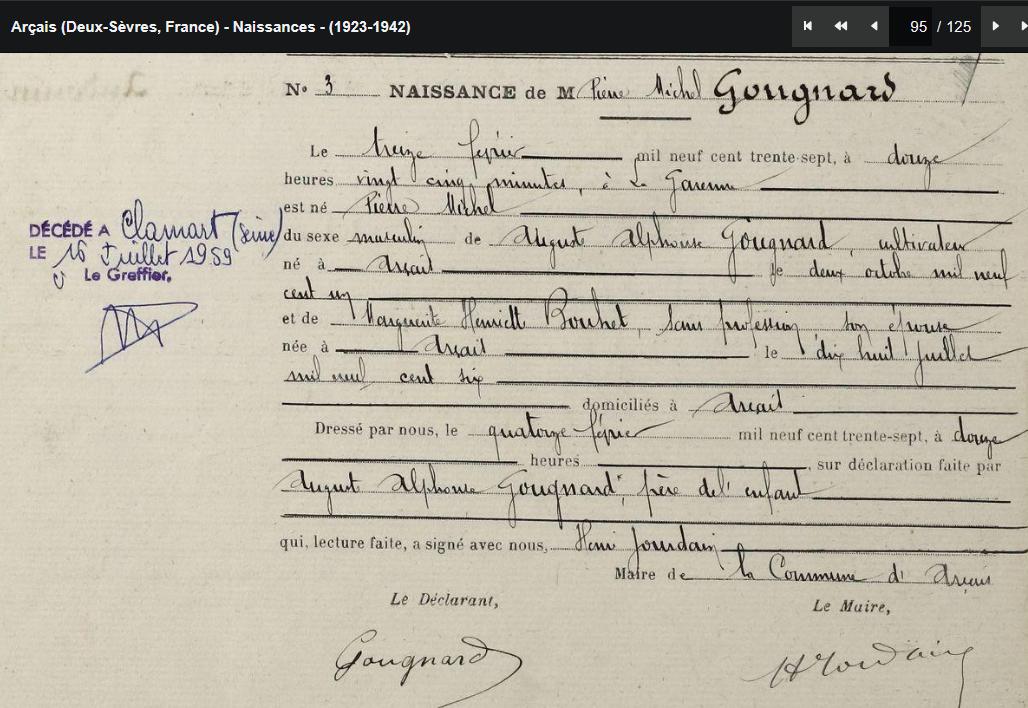 Arçais (Deux-Sèvres, France) - Naissances - (1923-1942)
95 / 125
No 3 NAISSANCE de M Pierre Michel Gougnard
Le treize février mil neuf cent trente-sept, à douze
heures vingt cinq minutes, à La Garenne
est né Pierre Michel
du sexe masculin de August Alphonse Gougnard, cultivateur
né à Arçais le deux octobre mil neuf
cent un
et de Marguerite Henriett Bouhet, sans profession, son épouse
née à Arçais le dix huit juillet
mil neuf cent six
domiciliés à Arçais
Dressé par nous, le quatorze février mil neuf cent trente-sept, à douze
heures, sur déclaration faite par
August Alphonse Gougnard, père de l'enfant
qui, lecture faite, a signé avec nous, Henri Jourdain
Maire de la Commune d'Arçais
Le Déclarant,
Le Maire,
Gougnard
H Jourdain
DÉCÉDÉ A Clamart (Seine)
LE 16 Juillet 1959
Le Greffier,